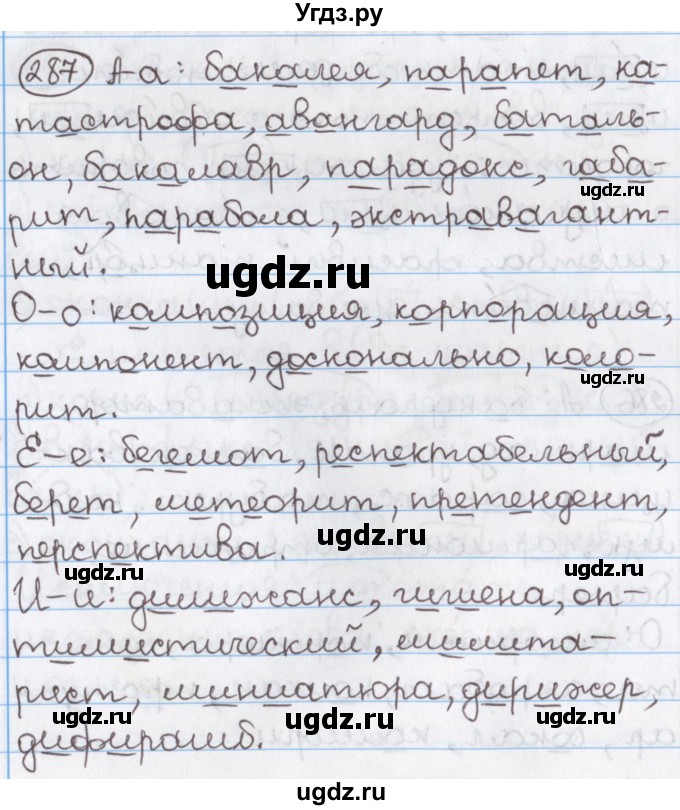 Угdz.ру
287 А-а: бакалея, парапет, ка-
тастрофа, авангард, баталь-
он, бакалавр, парадокс, габа-
ugdz.ru
рит, парабола, экстравагант-
ный.
ugdz.ru
О-о: композиция, корпорация,
компонент, досконально, коло-
ugdz.ru
рит.
Е-е: бегемот, респектабельный,
берет, метеорит, претендент,
ugdz.ru
перспектива.
ugdz.ru
И-и: дилижанс, гигиена, оп-
тимистический, милита-
рист, миниатюра, дирижер,
ugdz.ru ugdz.ru ugdz.ru
дифирамб.
ugdz.ru